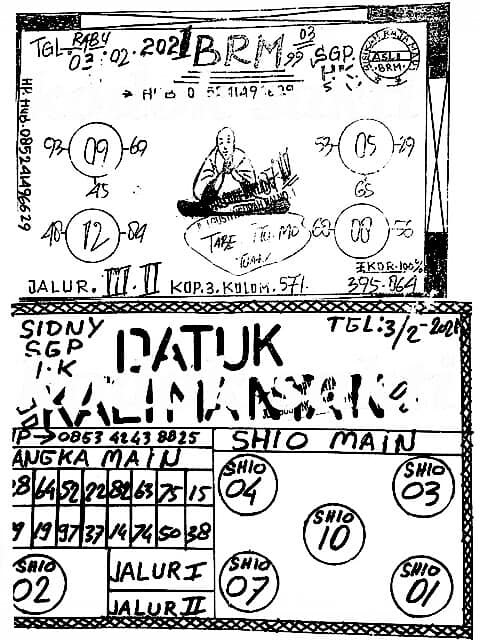 TGL RABU
03.02.2021
BRM
03
99
SGP
HK
ASLI
BRM
HK Hub.085241496629
93 09 69
45
48 12 84
53 05 29
65
60 08 56
JALUR. III. II
KOP.3.KOLOM.571.
EKOR.100%
395.864
SIDNY
SGP
H.K
DATUK
KALIMANTAN
TGL:3/2-2021
HP→0853 4243 8825
ANGKA MAIN
64 52 22 82 63 75 15
19 97 37 14 74 50 38
SHIO
02
JALUR I
JALUR II
SHIO MAIN
SHIO
04
SHIO
03
SHIO
10
SHIO
07
SHIO
01